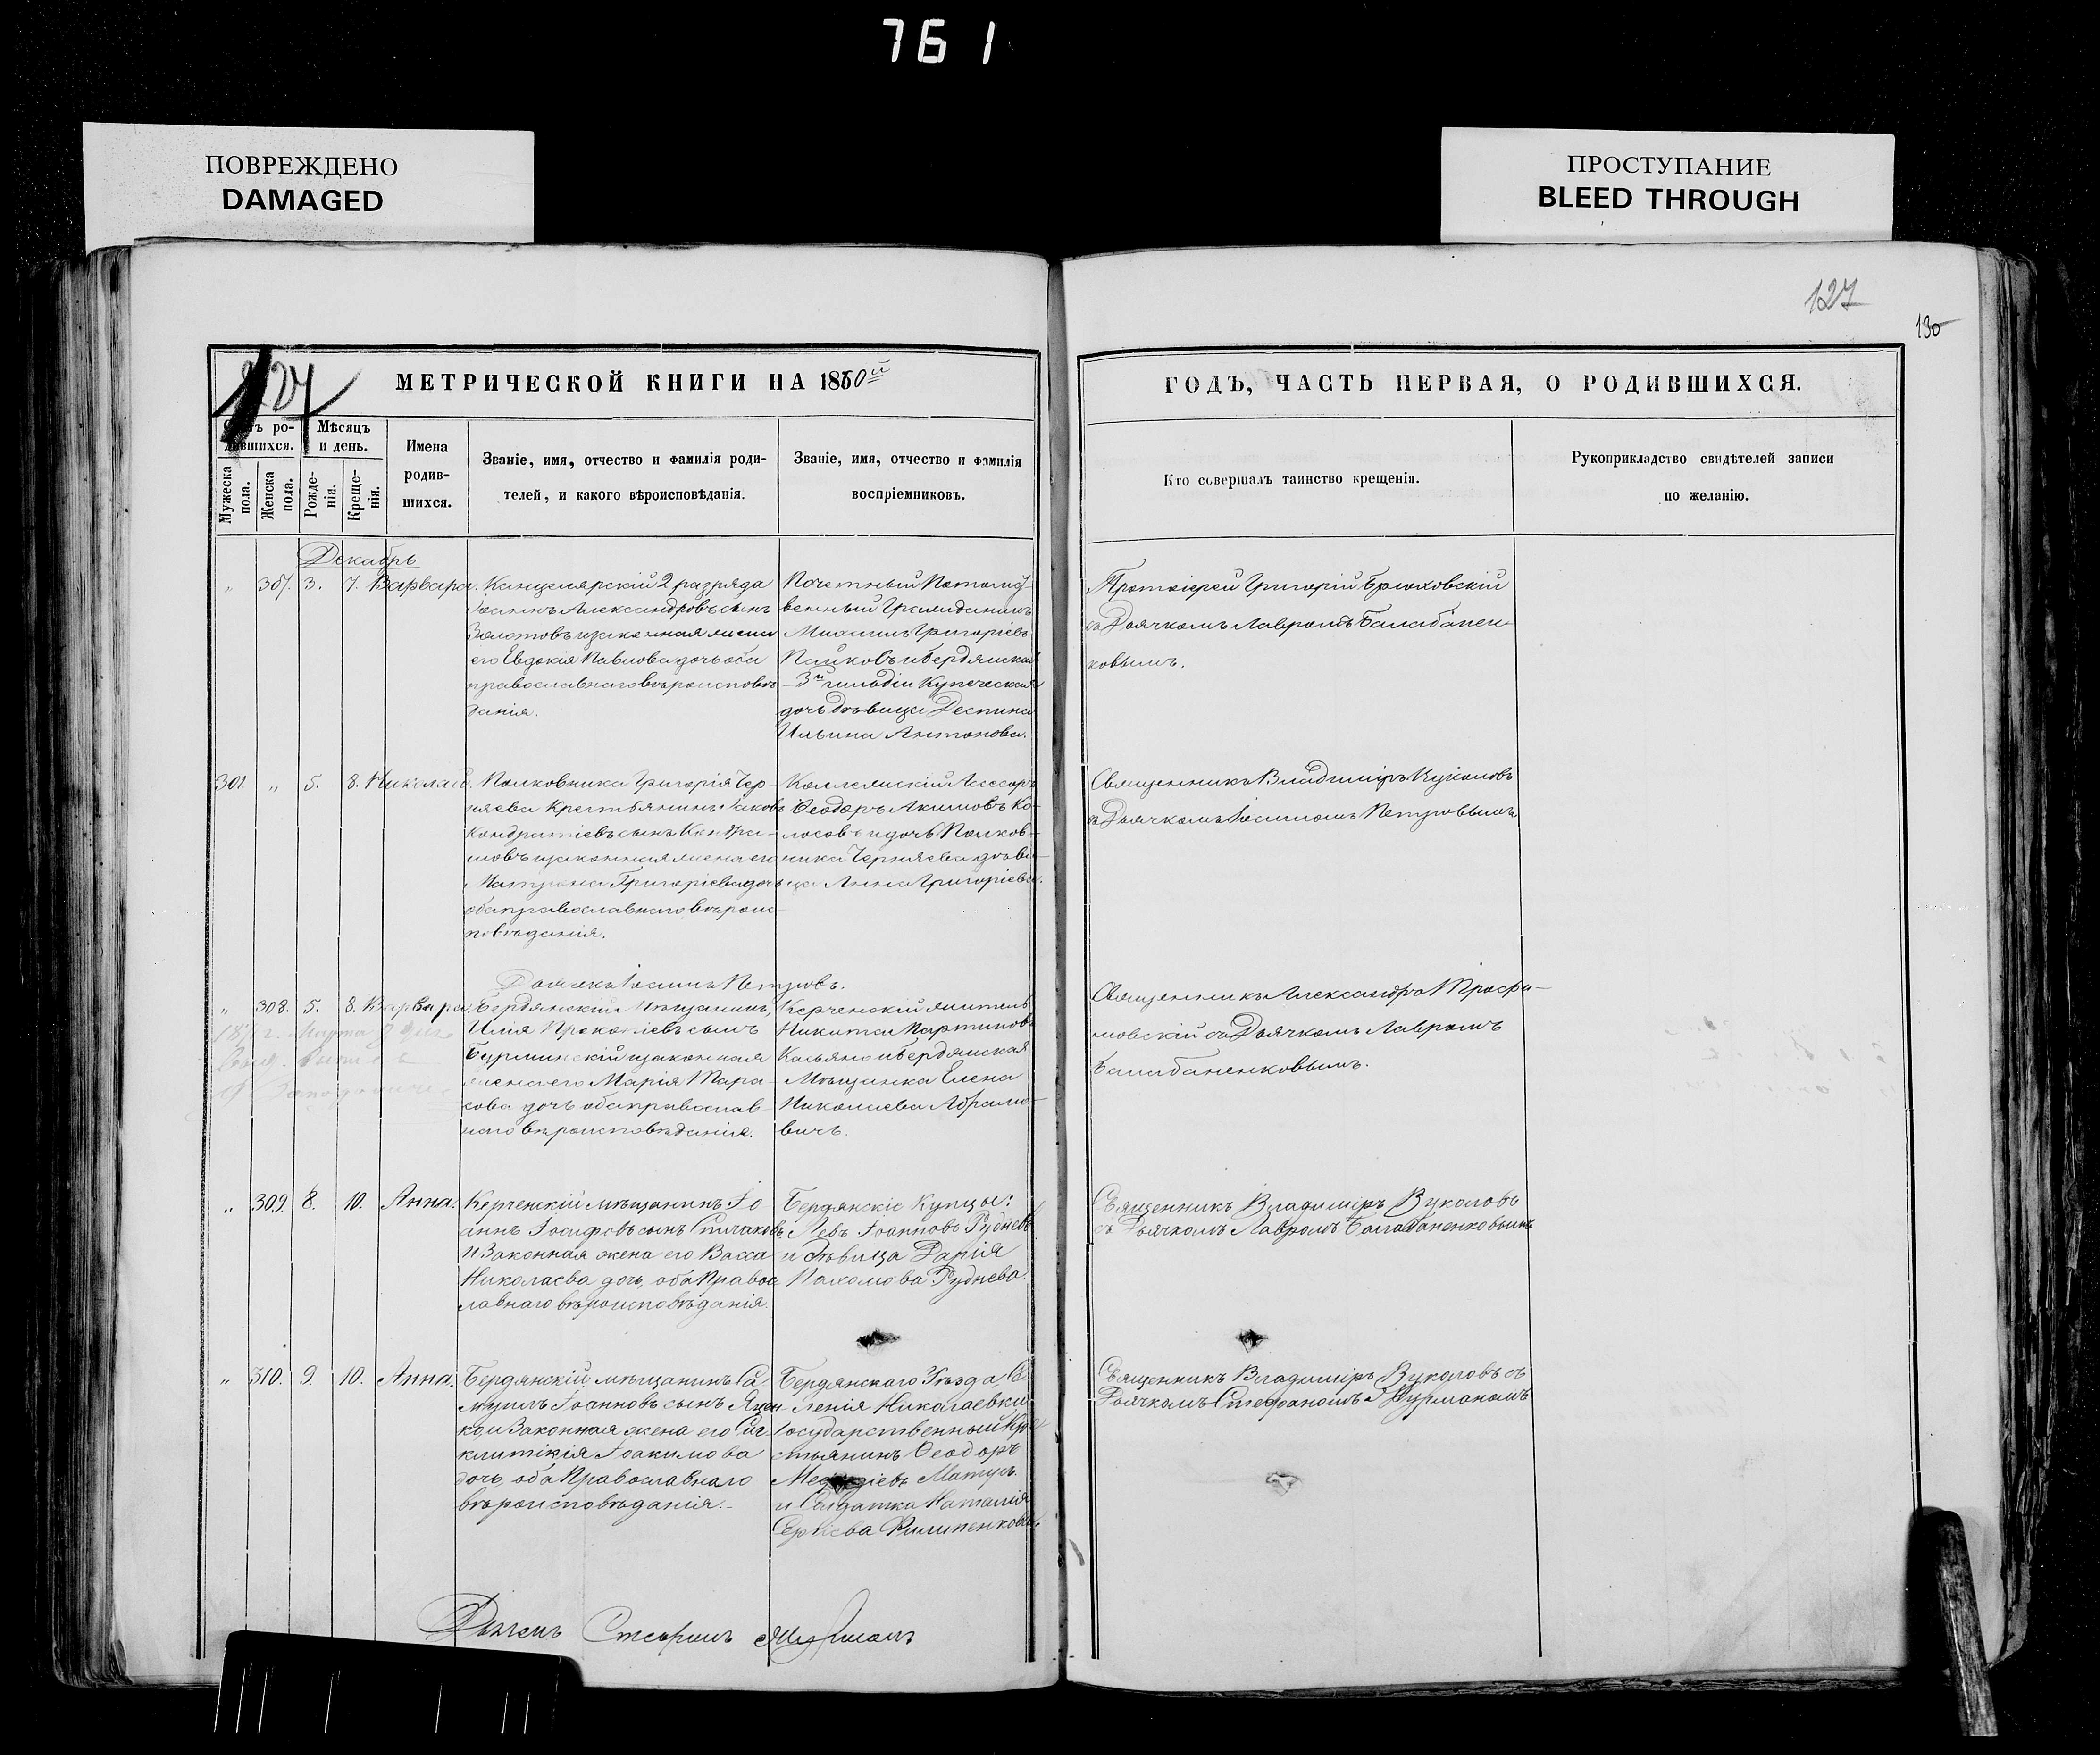 761
ПОВРЕЖДЕНО
DAMAGED
ПРОСТУПАНИЕ
BLEED THROUGH
127
130
127
МЕТРИЧЕСКОЙ КНИГИ НА 1860й
ГОДЪ, ЧАСТЬ ПЕРВАЯ, О РОДИВШИХСЯ.
Счетъ ро-
дившихся.
Мужеска
пола.
Женска
пола.
Мѣсяцъ
и день.
Рожде-
нія.
Креще-
нія.
Имена
родив-
шихся.
Званіе, имя, отчество и фамилія роди-
телей, и какого вѣроисповѣданія.
Званіе, имя, отчество и фамилія
воспріемниковъ.
Кто совершалъ таинство крещенія.
Рукоприкладство свидѣтелей записи
по желанію.
Декабрь
" 307. 3. 7. Варвара.
Канцелярскій 2 разряда
Іоаннъ Александровъ сынъ
Золотовъ и законная жена
его Евдокія Павлова дочь оба
православнаго вѣроисповѣ
данія.
Почетный Потомст-
венный Гражданинъ
Михаилъ Григоріевъ
и Бердянская
3й гильдіи Купеческая
дочь дѣвица Деспина
Ильина Антонова.
Протоіерей Григорій Брюховскій
съ Дьячкомъ Лавромъ Балабанен-
ковымъ.
301. " 5. 8. Николай.
Полковника Григорія Чер-
няева Крестьянинъ Іаковъ
Кондратіевъ сынъ
и законная жена его
Матрона Григоріева дочь
оба православнаго вѣроис-
повѣданія.
Коллежскій Ассесоръ
Ѳеодоръ Акимовъ Ко-
лосовъ и дочь Полков-
ника Черняева дѣви-
ца Анна Григоріева.
Священникъ Владиміръ Вуколовъ
съ Дьячкомъ Іоанномъ Петровымъ
Дьячекъ Іоаннъ Петровъ.
" 308. 5. 8. Варвара.
Бердянскій Мѣщанинъ
Илія Прокопіевъ сынъ
и законная
жена его Марія Тара-
сова дочь оба православ-
наго вѣроисповѣданія.
Керченскій житель
Никита Мартиновъ
Касьяно и Бердянская
Мѣщанка Елена
Николаева Абрамо-
вичъ.
Священникъ Александръ
съ Дьячкомъ Лавромъ
Балабаненковымъ.
" 309. 8. 10. Анна.
Керченскій мѣщанинъ Іо
аннъ Іосифовъ сынъ
и Законная жена его Васса
Николаева дочь, оба Правос
лавнаго вѣроисповѣданія.
Бердянскіе Купцы:
Левъ Іоанновъ Рудневъ
и дѣвица Дарія
Пахомова Руднева.
Священникъ Владиміръ Вуколовъ
съ Дьячкомъ Лавромъ Балабаненковымъ
" 310. 9. 10. Анна.
Бердянскій мѣщанинъ Са
муилъ Іоанновъ сынъ Яцен-
ко, и Законная жена его Син
клитикія Іоакимова
дочь, оба Православнаго
вѣроисповѣданія.-
Бердянскаго Уѣзда Се-
ленія Николаевки
Государственный Кре
стьянинъ Ѳеодоръ
и Солдатка Наталія
Сергіева Филипенкова.
Священникъ Владиміръ Вуколовъ съ
Дьячкомъ Стефаномъ Мурманомъ
Дьячекъ Стефанъ Мурманъ